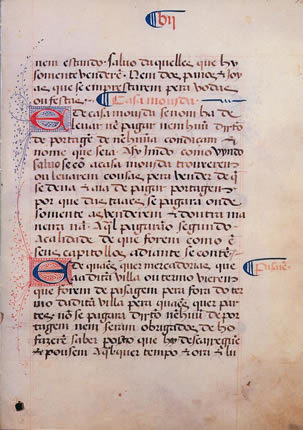 bij
nem estando. saluo daquelles que hy
somente venderẽ. Nem dos panos, & Joy
as, que se emprestarem pera vodas
ou festas. Casa mouida
E de casa mouida senom ha de
leuar nẽ pagar nem huũ dirto
de portagẽ de nẽhuũa condicam &
nome que seia. Asy hindo como vindo
saluo se cõ a casa mouida trouxerem
ou leuarem cousas pera vender de q̃
se deua & aia de pagar portagem
por que das taaes se pagara onde
somente as venderem & doutra ma
neira nã. A q̃l pagarão segundo
a calidade de que forem como ẽ
seus capitollos adiante se contẽ.
E de quaaes quer mercadorias, que
aa dita villa ou termo vierẽ
que forem de pasagem pera fora do ter
mo da dita villa pera quaaes quer par
tes, nõ se pagara dirto nẽhuũ de por
tagem nem seram obrigados de ho
fazerẽ saber posto que hy descaregue
& pousem A q̃lquer tempo & ora & lu
Pasaiẽ.